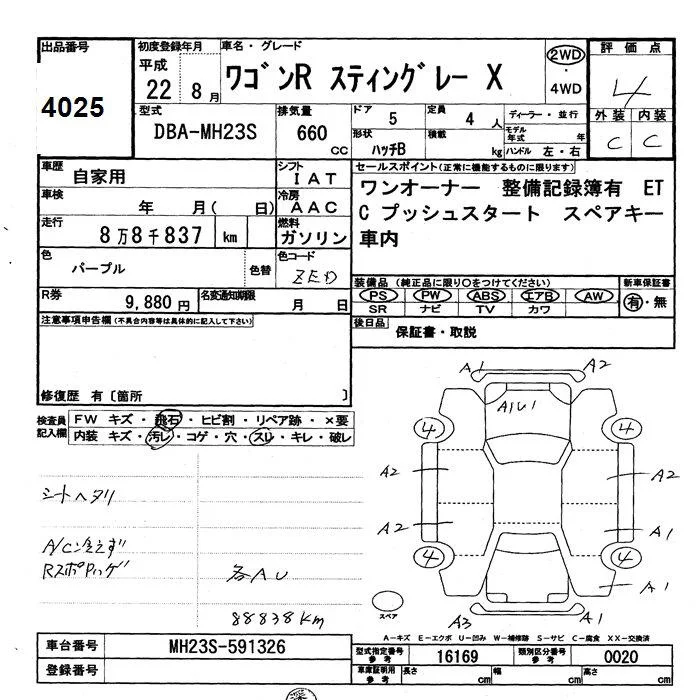 出品番号 4025
初度登録年月 平成 22 8月
車名・グレード ワゴンR スティングレー X
2WD・4WD
評価点 4
外装 C 内装 C
型式 DBA-MH23S
排気量 660 CC
ドア 5 定員 4 人
形状 ハッチB 積載 kg
ディーラー・並行
モデル年式 年
ハンドル 左・右
車歴 自家用
シフト IAT
車検 年 月(日)
冷房 AAC
走行 8万8千837 km
燃料 ガソリン
色 パープル 色替
色コード ZED
R券 9,880円
名変通知期限 月 日
セールスポイント(正常に機能するものに限ります)
ワンオーナー 整備記録簿有 ET
C プッシュスタート スペアキー
車内
装備品 (純正品に限り○をつけてください) 新車保証書
PS・PW・ABS・エアB・AW 有・無
SR ナビ TV カワ
後日品 保証書・取説
注意事項申告欄(不具合内容等は具体的に記入して下さい)
修復歴 有〔箇所 〕
検査員記入欄
FW キズ・飛石・ヒビ割・リペア跡・×要
内装 キズ・汚レ・コゲ・穴・スリ・キレ・破レ
シートヘタリ
A/C冷えず
Rスポ
各AU
88838KM
A1 A2
A1U1
4 4
A2 A2
A2 A1
4 4
A1
スペア
A3 A1
A-キズ E-エクボ U-凹み W-補修跡 S-サビ C-腐食 XX-交換済
車台番号 MH23S-591326
登録番号
型式指定番号 参考 16169
類別区分番号 参考 0020
車庫証明用 参考 長さ cm 幅 cm 高さ cm